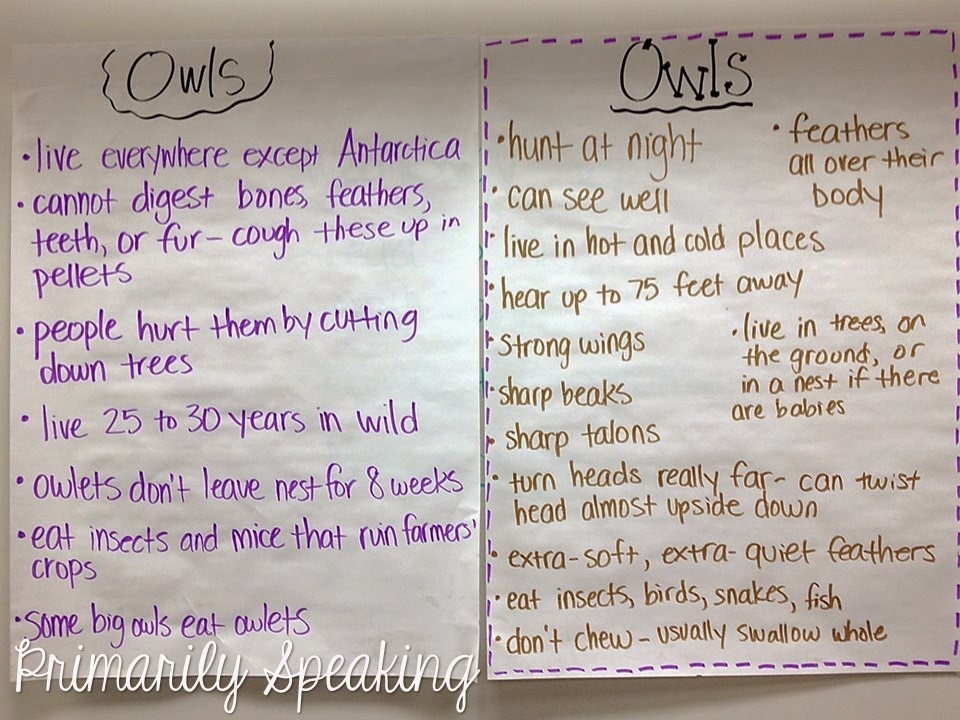 Owls
• live everywhere except Antarctica
• cannot digest bones, feathers,
teeth, or fur – cough these up in
pellets
• people hurt them by cutting
down trees
• live 25 to 30 years in wild
• owlets don't leave nest for 8 weeks
• eat insects and mice that ruin farmers'
crops
• some big owls eat owlets
Owls
• hunt at night
• can see well
• feathers
all over their
body
• live in hot and cold places
• hear up to 75 feet away
• strong wings
• sharp beaks
• sharp talons
• live in trees, on
the ground, or
in a nest if there
are babies
• turn heads really far – can twist
head almost upside down
• extra-soft, extra-quiet feathers
• eat insects, birds, snakes, fish
• don't chew – usually swallow whole
Primarily Speaking